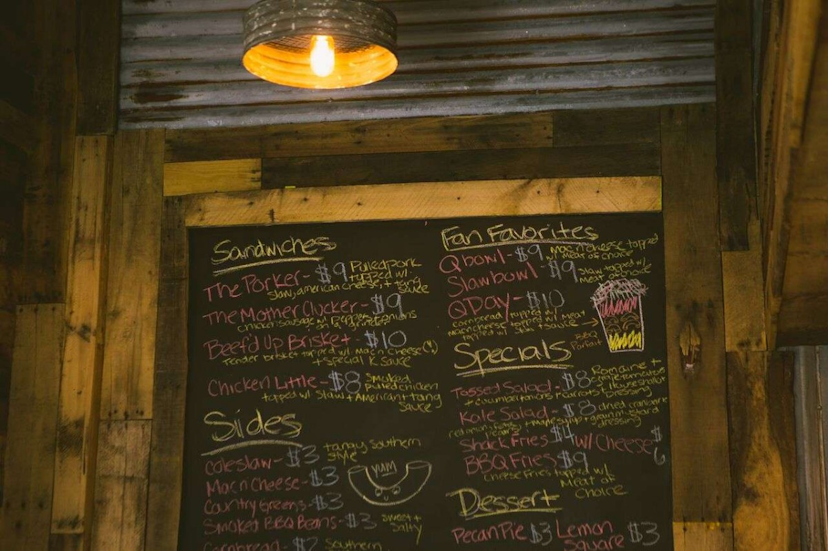 Sandwiches
The Porker - $9 Pulled pork
topped w/
slaw, american cheese, + tang
sauce
The Mother Clucker - $9
chicken sausage w/ peppers + onions
Beef'd Up Brisket - $10
tender brisket topped w/ mac n cheese (!)
+ special K sauce
Chicken Little - $8 Smoked
pulled chicken
topped w/ slaw + American + tang
sauce
Sides
coleslaw - $3 tangy southern
style
Mac n Cheese - $3
Country Greens - $3
Smoked BBQ Beans - $3 sweet +
salty
Cornbread - $2 Southern
YUM
Fan Favorites
Q bowl - $9 mac n cheese topped
w/ meat of choice
Slawbowl - $9 slaw topped w/
meat of choice
QPay - $10
cornbread topped w/ meat
mac n cheese topped w/ meat
topped w/ slaw + sauce →
BBQ
Parfait
Specials
Tossed Salad - $8 Romaine +
Dressing
Kale Salad - $8 dried cranberry
dressing
Shack Fries $4 w/ Cheese $6
BBQ Fries $9
cheese fries topped w/
Meat of
Choice
Dessert
Pecan Pie $3 Lemon
Square $3